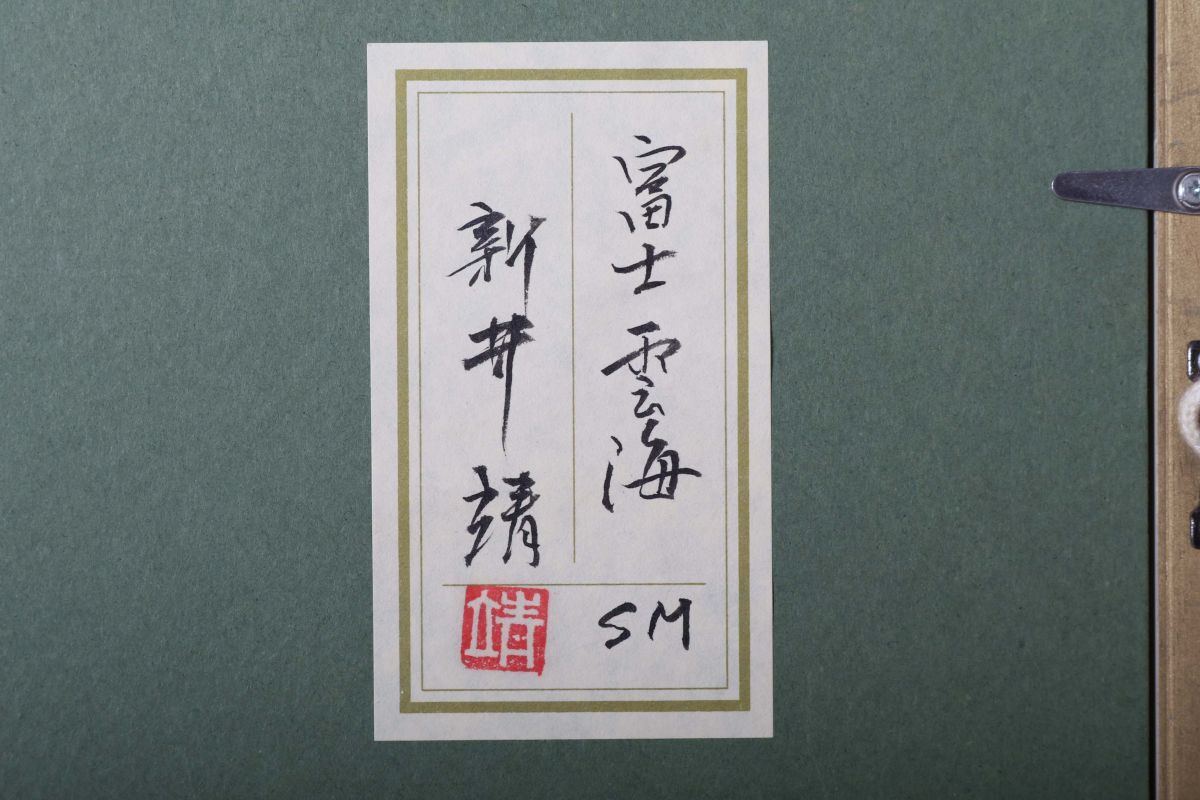 富士雲海
SM
新井靖
靖